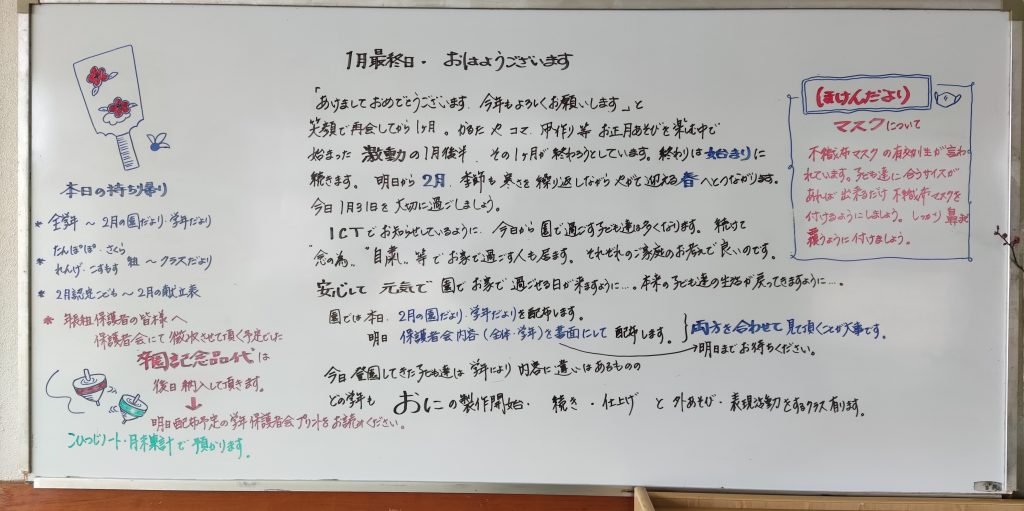 1月最終日・ おはようございます
「あけましておめでとうございます．今年もよろしくお願いします」と
笑顔で再会してから1ヶ月。かるたやコマ、甲作り等 お正月あそびを楽む中で
始まった 激動の1月後半．その1ヶ月が終わろうとしています。終わりは始まりに
続きます。 明日から2月．季節も寒さを繰り返しながらやがて迎える春へとつながります。
今日1月31日を大切に過ごしましょう。
ICTでお知らせしているように、今日から園で過す子ども達は多くなります。続けて
"念の為" "自粛" 等でお家で過ごす人も居ます。それぞれのご家庭のお考えで良いのです。
安心して 元気で 園でお家で過ごせる日が来ますように…。本来の子ども達の生活が戻ってきますように…。
園では本日．2月の園だより・学年だよりを配布します。
明日 保護者会内容(全体・学年)を書面にして配布します。
両方を合わせて見て頂くことが大事です。
→明日までお待ちください。
今日登園してきた子ども達は学年により内容に違いはあるものの
どの学年も おにの製作開始・ 続き・仕上げ と外あそび・表現活動をするクラス有ります。
本日の持ち帰り
* 全学年 ～ 2月の園だより・学年だより
* たんぽぽ・さくら
れんげ・こすもす 組 ～クラスだより
* 2月認定こども～2月の献立表
* 年長組保護者の皆様へ
保護者会にて徴収させて頂く予定でした
卒園記念品代は
後日納入して頂きます。
↓
明日配布予定の学年保護者会プリントをお読みください。
こひつじノート・月末集計で預かります。
(ほけんだより)
マスクについて
不織布マスクの有効性が言わ
れています。子ども達に合うサイズが
あれば出来るだけ不織布マスクを
付けるようにしましょう。しっかり鼻まで
覆うように付けましょう。